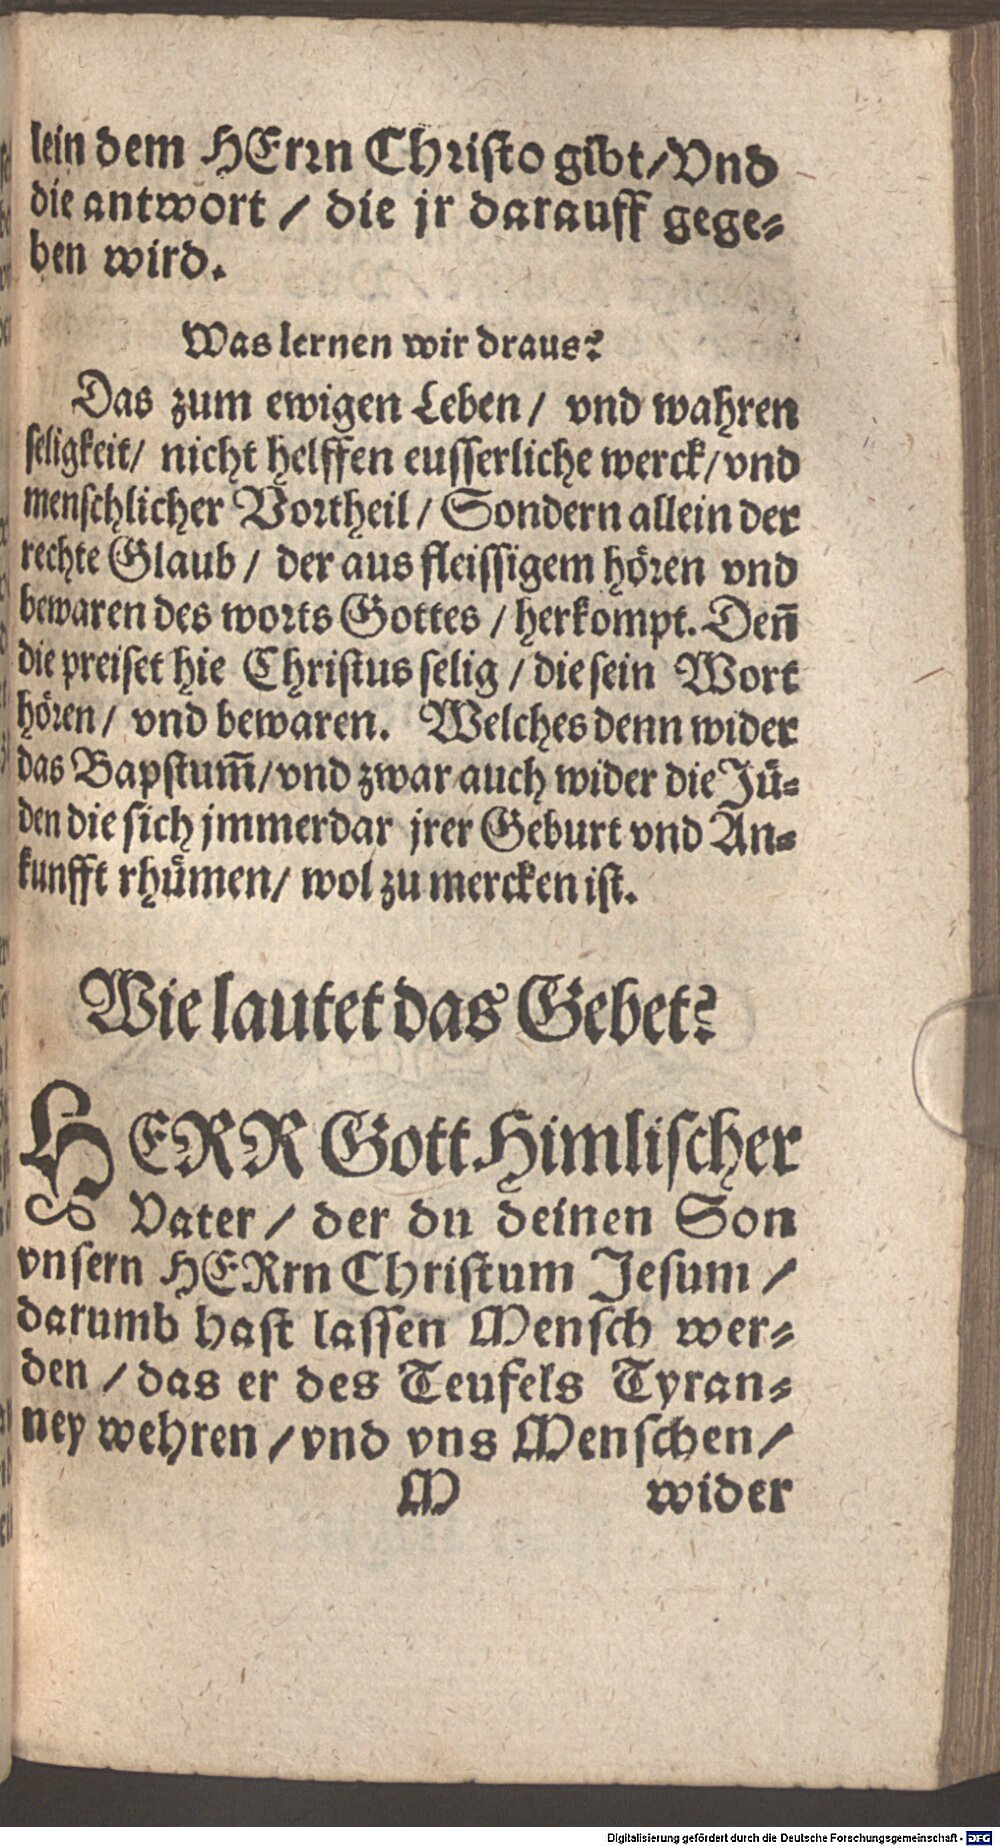 lein dem HErrn Christo gibt/Vnd
die antwort / die jr darauff gege-
ben wird.
Was lernen wir draus?
Das zum ewigen Leben / vnd wahren
seligkeit/ nicht helffen eusserliche werck/vnd
menschlicher Vortheil / Sondern allein der
rechte Glaub / der aus fleissigem hören vnd
bewaren des worts Gottes / herkompt. Deñ
die preiset hie Christus selig / die sein Wort
hören / vnd bewaren. Welches denn wider
das Bapstum̃/vnd zwar auch wider die Jü-
den die sich jmmerdar jrer Geburt vnd An-
kunfft rhümen/ wol zu mercken ist.
Wie lautet das Gebet?
HERR Gott Himlischer
Vater / der du deinen Son
vnsern HERrn Christum Jesum /
darumb hast lassen Mensch wer-
den / das er des Teufels Tyran-
ney wehren / vnd vns Menschen /
M wider
Digitalisierung gefördert durch die Deutsche Forschungsgemeinschaft - DFG